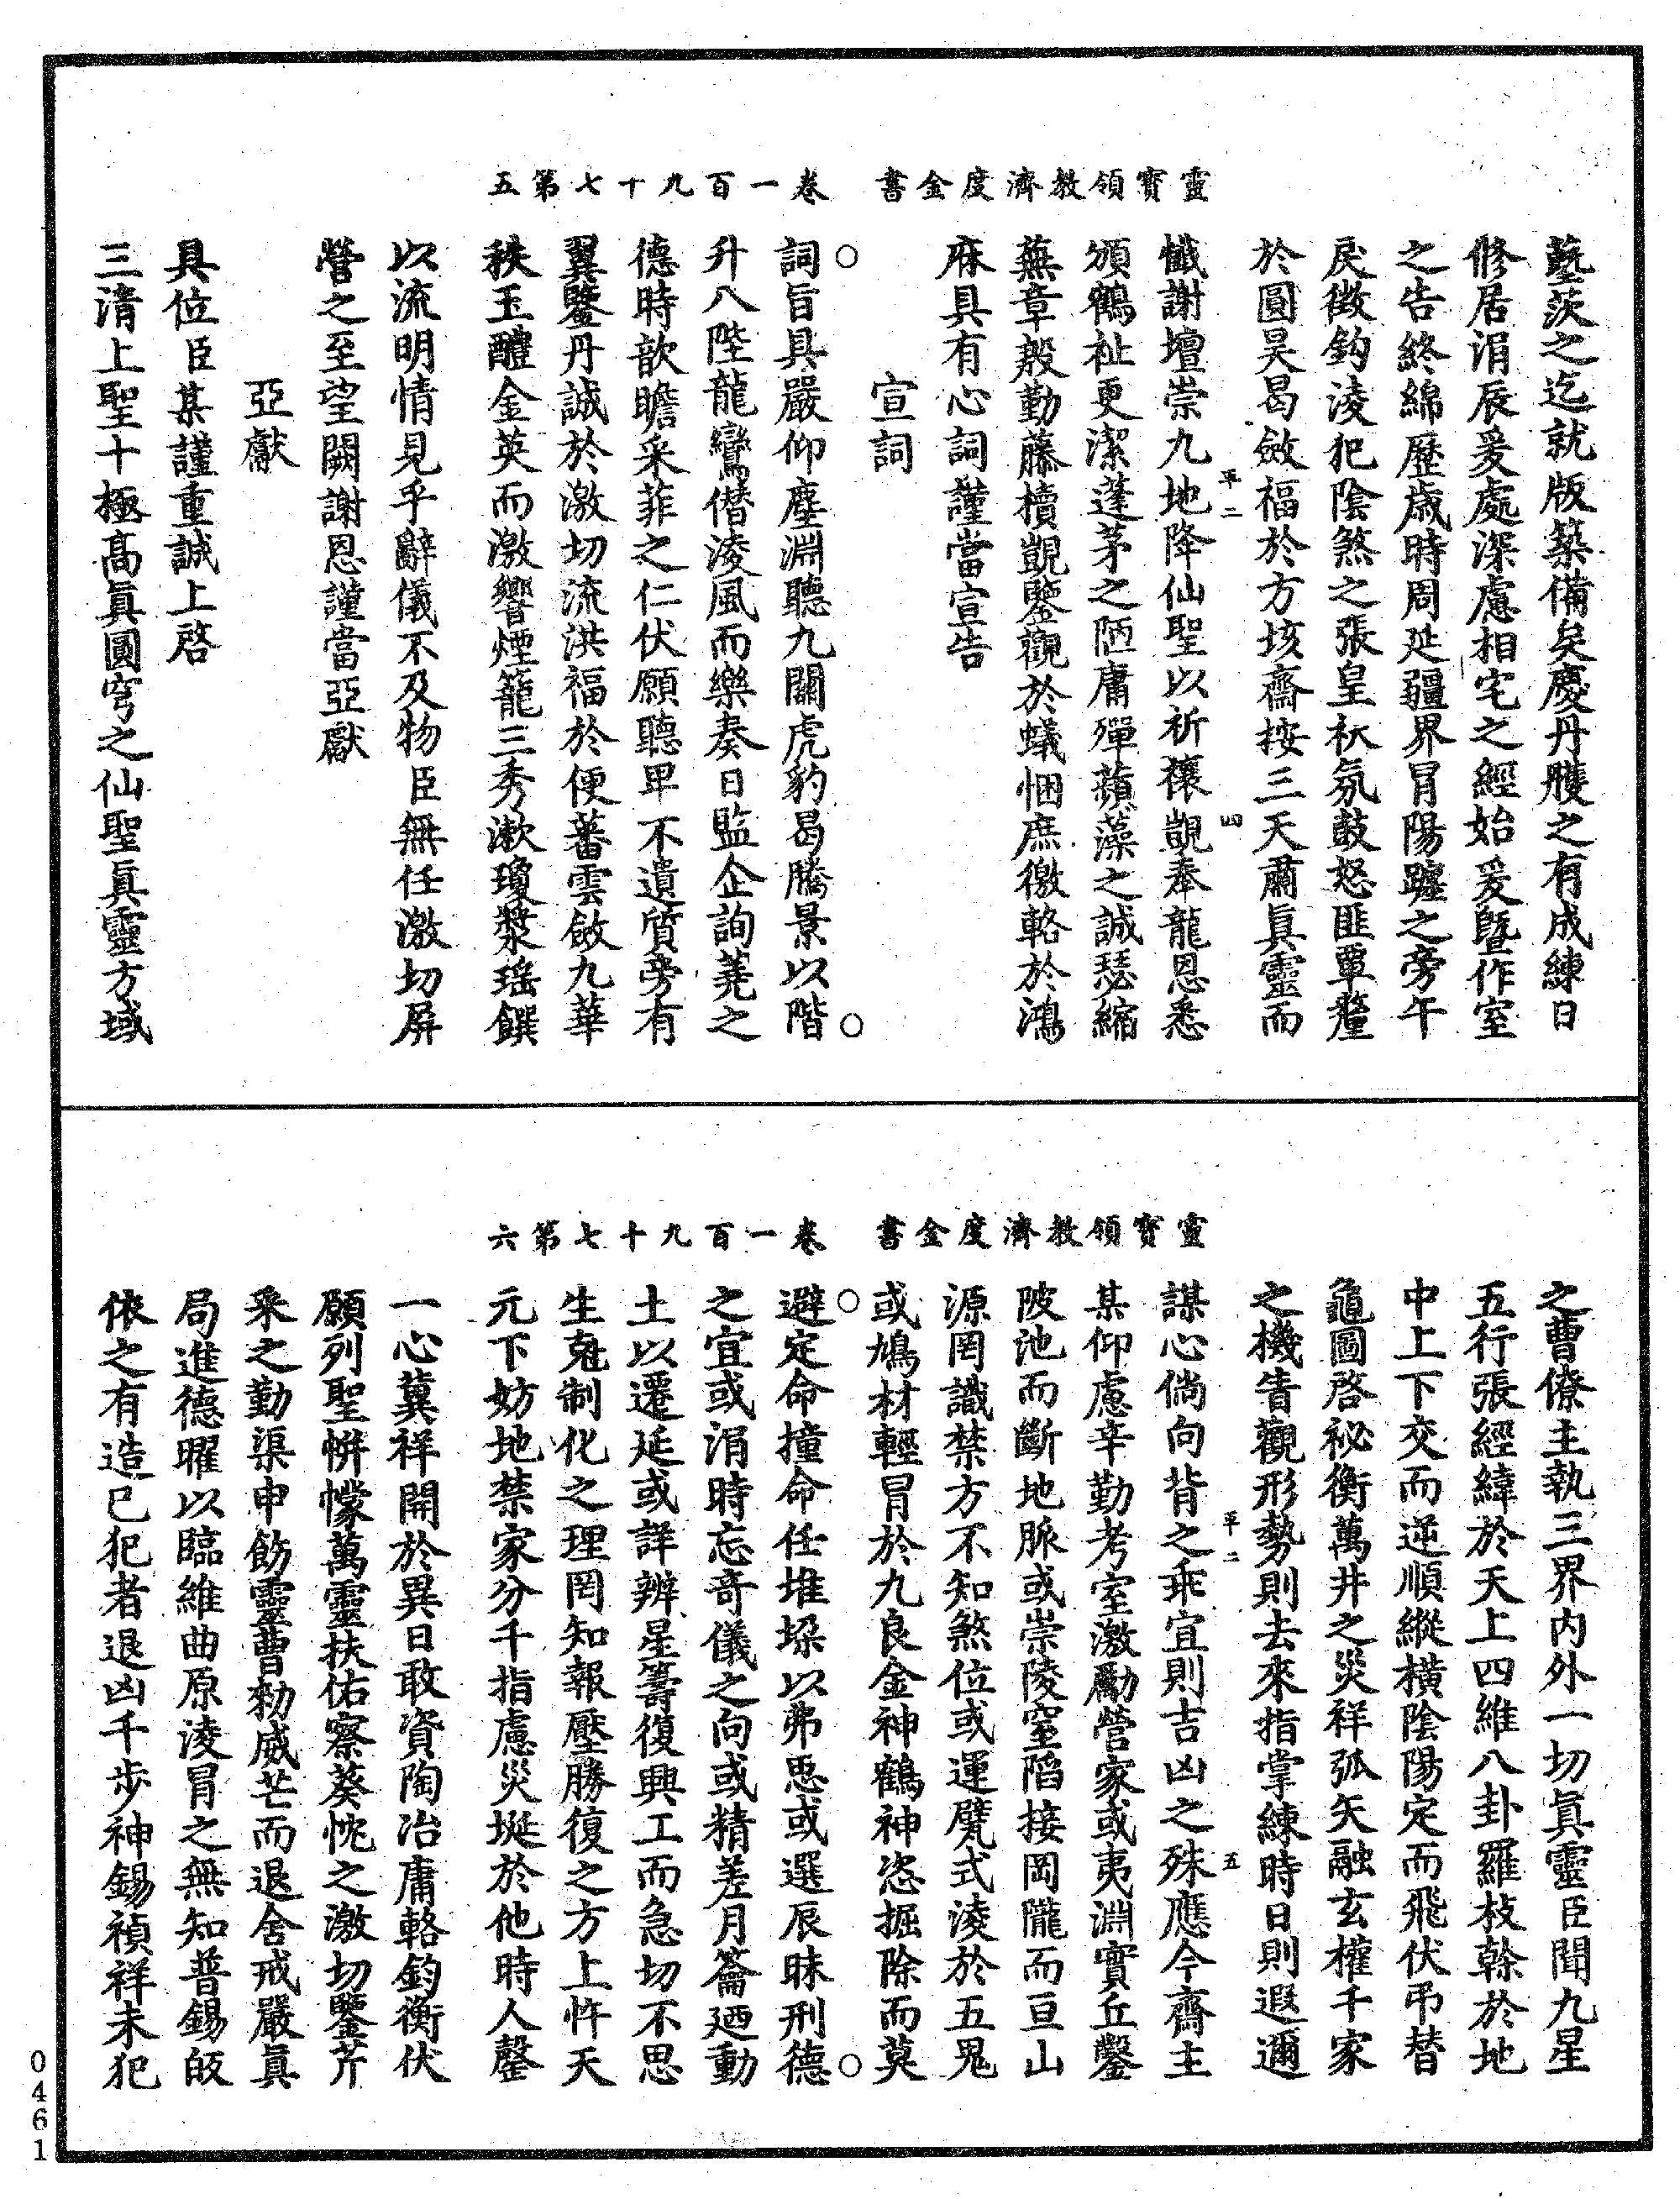 靈寶領教濟度金書　卷一百九十七第五
蓺茨之迄就版築備矣慶丹雘之有成練日
修居涓辰爰處深慮相宅之經始爰暨作室
之告終綿歷歲時周延疆界冒陽躔之旁午
戾徴鈎淩犯陰煞之張皇袄氛鼓怒匪覃釐
於圓昊曷斂福於方垓齋按三天肅眞靈而
平二　四
懺謝壇崇九地降仙聖以祈禳覬奉龍恩悉
頒鶴祉更潔蓬茅之陋庸殫蘋藻之誠瑟縮
蕪章殷勤藤櫝覬鑒觀於蟻悃庶徼輅於鴻
庥具有心詞謹當宣告
宣詞
詞旨具嚴仰塵淵聽九關虎豹曷騰景以階
升八陛龍鸞僭淩風而樂奏日監企詢蕘之
德時歆瞻采菲之仁伏願聽卑不遺質旁有
翼鑒丹誠於激切流洪福於便蕃雲斂九華
秩玉醴金英而激響煙籠三秀漱瓊漿瑤饌
以流明情見乎辭儀不及物臣無任激切屏
營之至望闕謝恩謹當亞獻
亞獻
具位臣某謹重誠上啓
三清上聖十極高眞圓穹之仙聖眞靈方域
靈寶領教濟度金書　卷一百九十七第六
之曹僚主執三界內外一切眞靈臣聞九星
五行張經緯於天上四維八卦羅枝榦於地
中上下交而逆順縱橫陰陽定而飛伏吊替
龜圖啓祕衡萬井之災祥弧矢融玄權千家
之機眚觀形勢則去來指掌練時日則遐邇
平二　五
謀心倘向背之乖宜則吉凶之殊應今齋主
某仰慮辛勤考室激勵營家或夷淵實丘鑿
陂池而斷地脈或崇陵窒陷接岡隴而亘山
源罔識禁方不知煞位或運甓式淩於五鬼
或鳩材輕冒於九良金神鶴神恣掘除而莫
避定命撞命任堆垛以弗思或選辰昧刑德
之宜或涓時忘奇儀之向或精差月籥廼動
土以遷延或詳辨星籌復興工而急切不思
生剋制化之理罔知報壓勝復之方上忤天
元下妨地禁家分千指慮災埏於他時人罄
一心冀祥開於異日敢資陶冶庸輅鈞衡伏
願列聖帡幪萬靈扶佑察葵忱之激切鑒芹
采之勤渠申飭靈曹勑威芒而退舍戒嚴眞
局進德曜以臨維曲原淩冒之無知普錫皈
依之有造已犯者退凶千步神錫禎祥未犯
0461